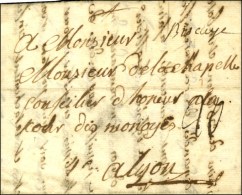 A Monsieur
Monsieur dela Chapelle
Conseiller d'honneur ala
Cour des monoyes
a Lyon